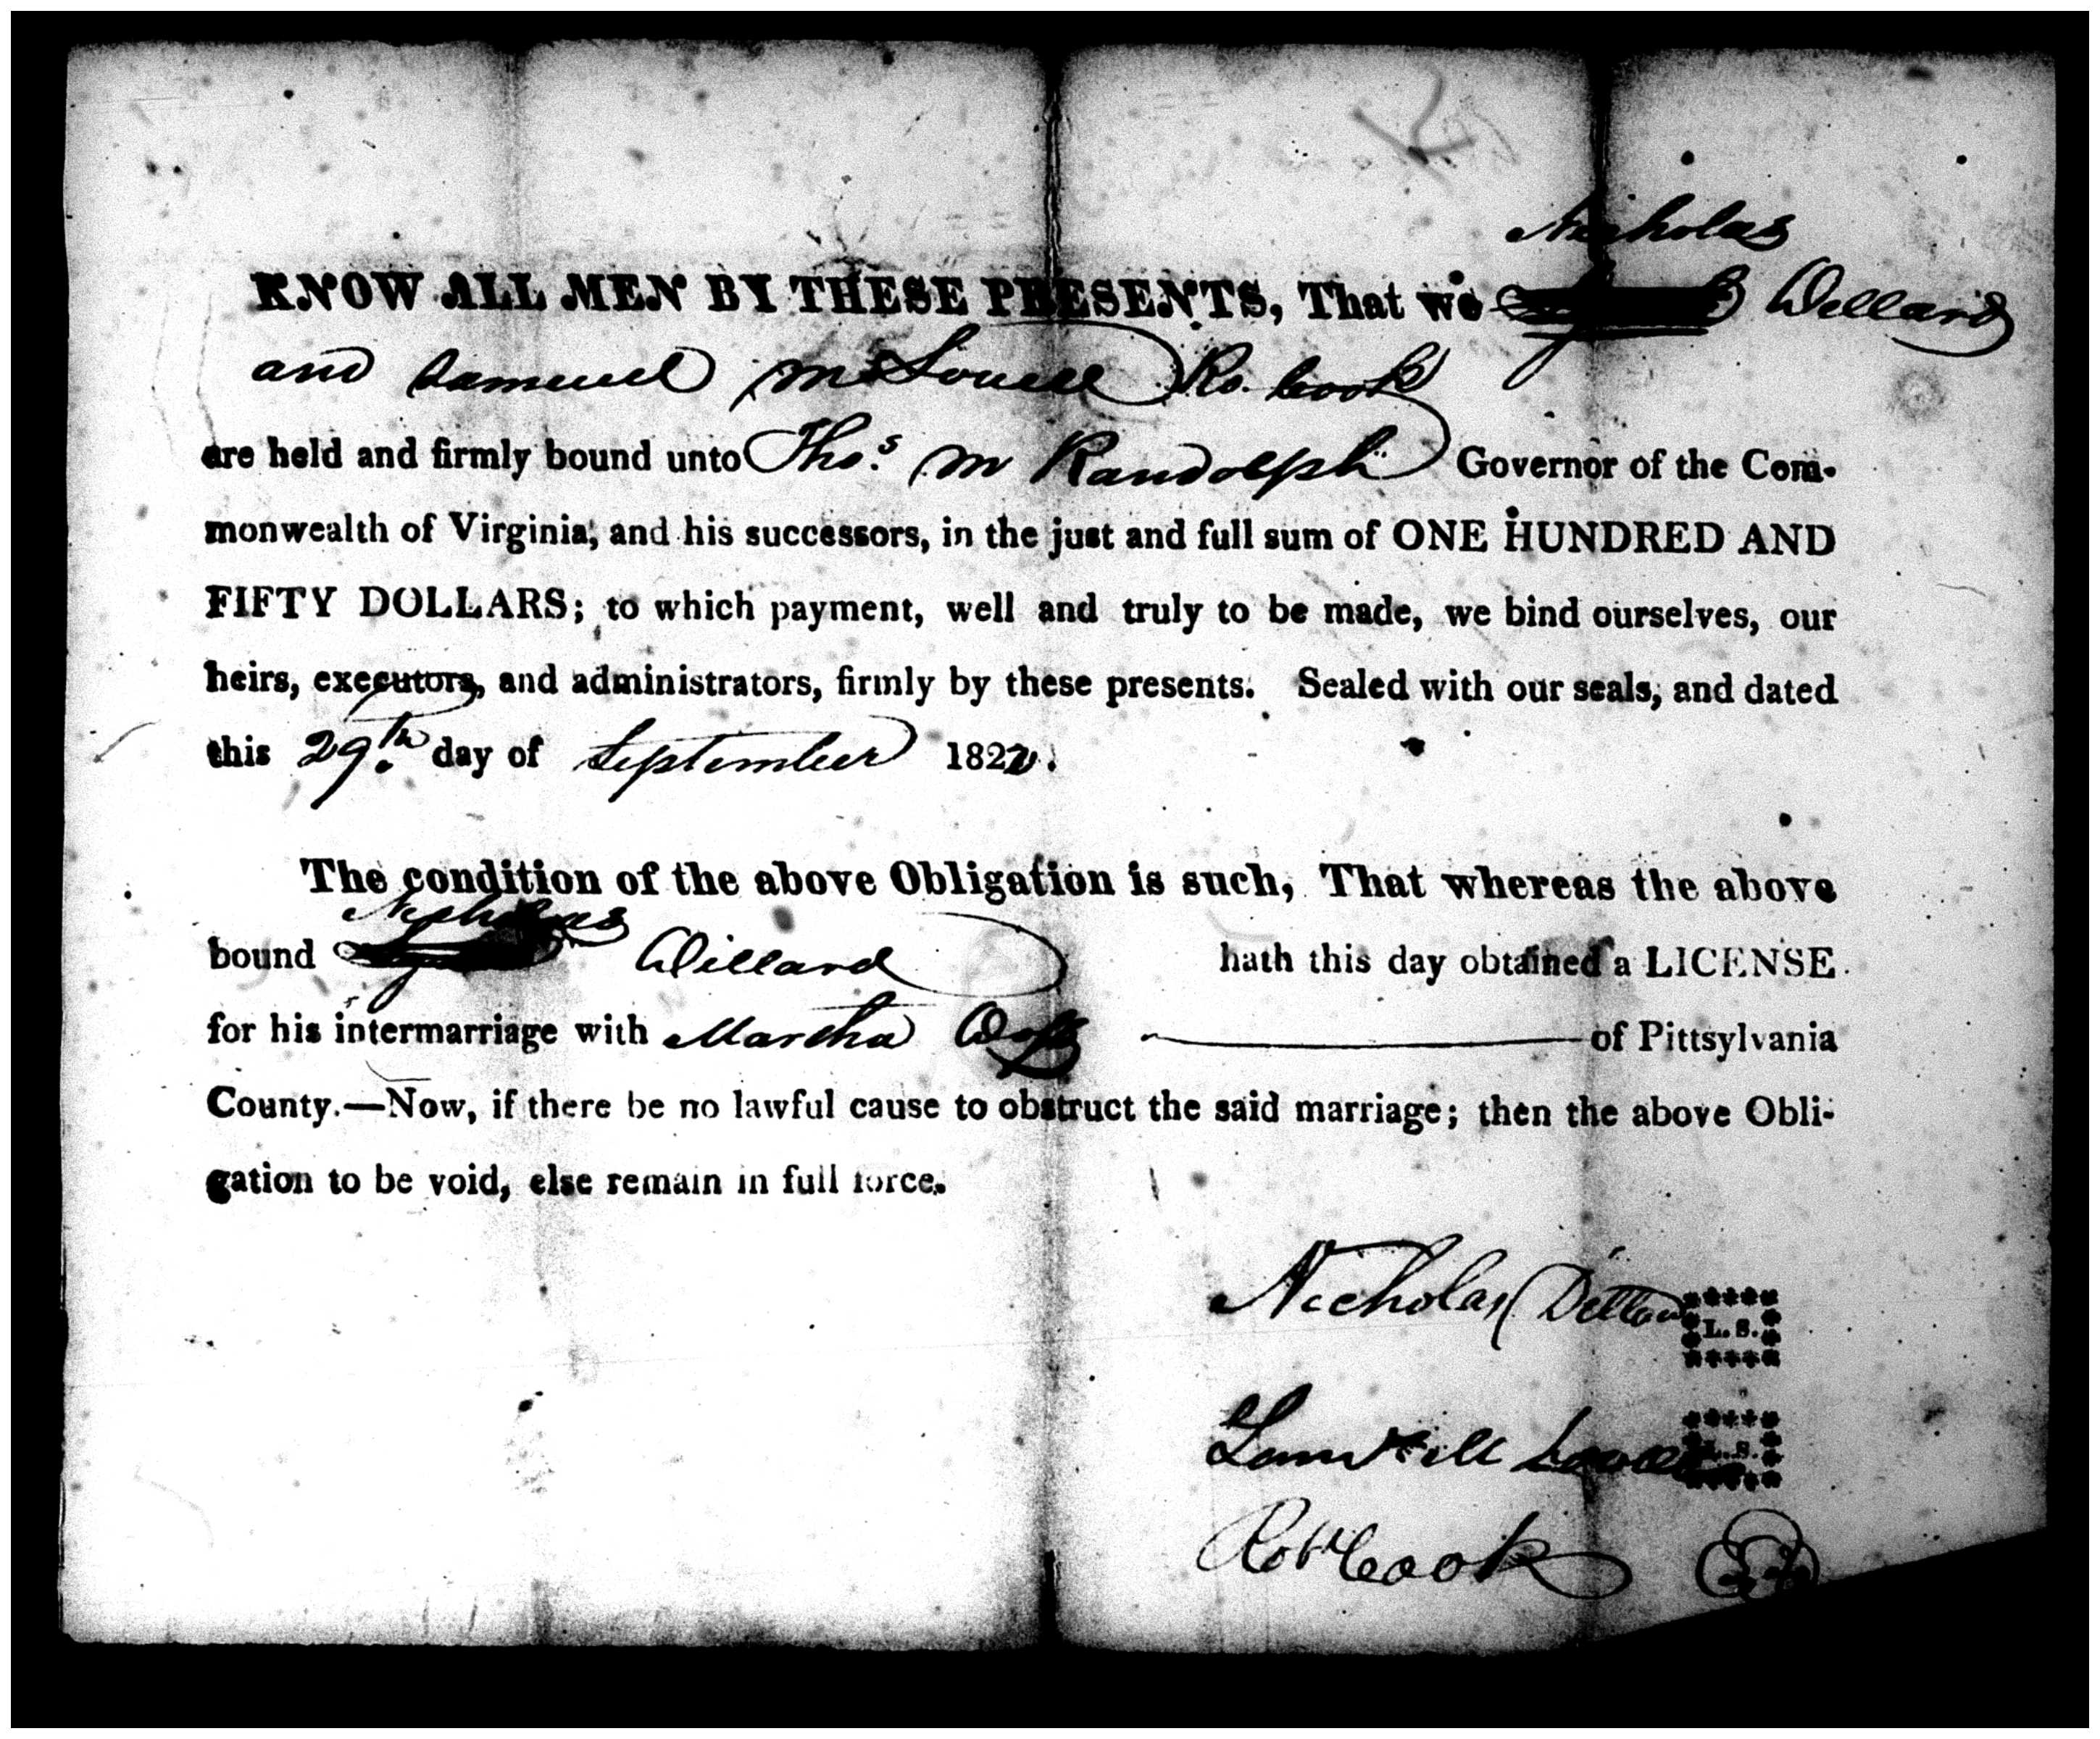 Nicholas
KNOW ALL MEN BY THESE PRESENTS, That we Dillard
and Samuel Ro. Cook
are held and firmly bound unto Thos. M Randolph Governor of the Com-
monwealth of Virginia, and his successors, in the just and full sum of ONE HUNDRED AND
FIFTY DOLLARS; to which payment, well and truly to be made, we bind ourselves, our
heirs, executors, and administrators, firmly by these presents. Sealed with our seals, and dated
this 29th. day of September 1822.
The condition of the above Obligation is such, That whereas the above
Nicholas
bound Dillard hath this day obtained a LICENSE
for his intermarriage with Martha of Pittsylvania
County.—Now, if there be no lawful cause to obstruct the said marriage; then the above Obli-
gation to be void, else remain in full force.
Nicholas L. S.
L. S.
Cook